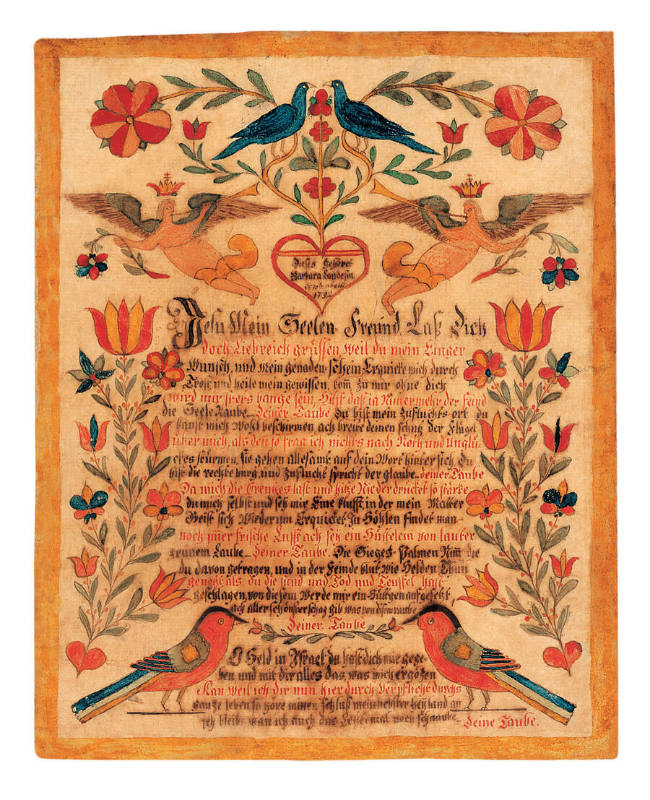 Dieses gehöret
Barbara Landesin
1792
Jesu Mein Seelen Freund Laß Dich
doch Liebreich grüssen weil du mein Einger
Wunsch, und dein genaden schein Erquicke mich durch
Trost und heile mein gewissen, kom zu mir ohne dich
wird mir stets bange sein, hilff daß ja Nimermehr der Feind
die Seele Raube Deiner Taube Du bist mein Zufluchts ort du
kanst mich Wohl beschirmen ach breite deinen schutz der Flügel
über mich, als den so frag ich nichts nach Noth und Unglü
ckes stürmen, sie gehen allesamt auf dein Wort hinter sich, Du
bist die rechte burg, und Zuflucht spricht der glaube deiner Taube
Da mich die Creutzes last und hitze Nieder drucket so stärke
du mich selbst und seh mir Eine klufft in der mein Matter
Geist sich Wiederum Erquicket, In Höhlen findet man
noch imer frische Lufft ach sey ein Hüttelein von lauter
grünem Laube Deiner Taube. Die Sieges Palmen Nim die
du davon getragen, und in der Feinde blut wie Helden
gemacht als du die sünd und Tod und Teuffel hast
geschlagen, von diesem Werde mir ein aufgesetzt
ach allerschönster schatz gib was von deinem raube
Deiner Taube
O Held in Israel du hast dich mir gege
ben und mit dir alles das, was mich ergözen
Kan weil ich dir nun hier durch verpflichte durchs
ganze leben so höre meinen schluß mein liebster heyland an
ich bleib wan ich auch das Letztemal noch schnaube Deine Taube.